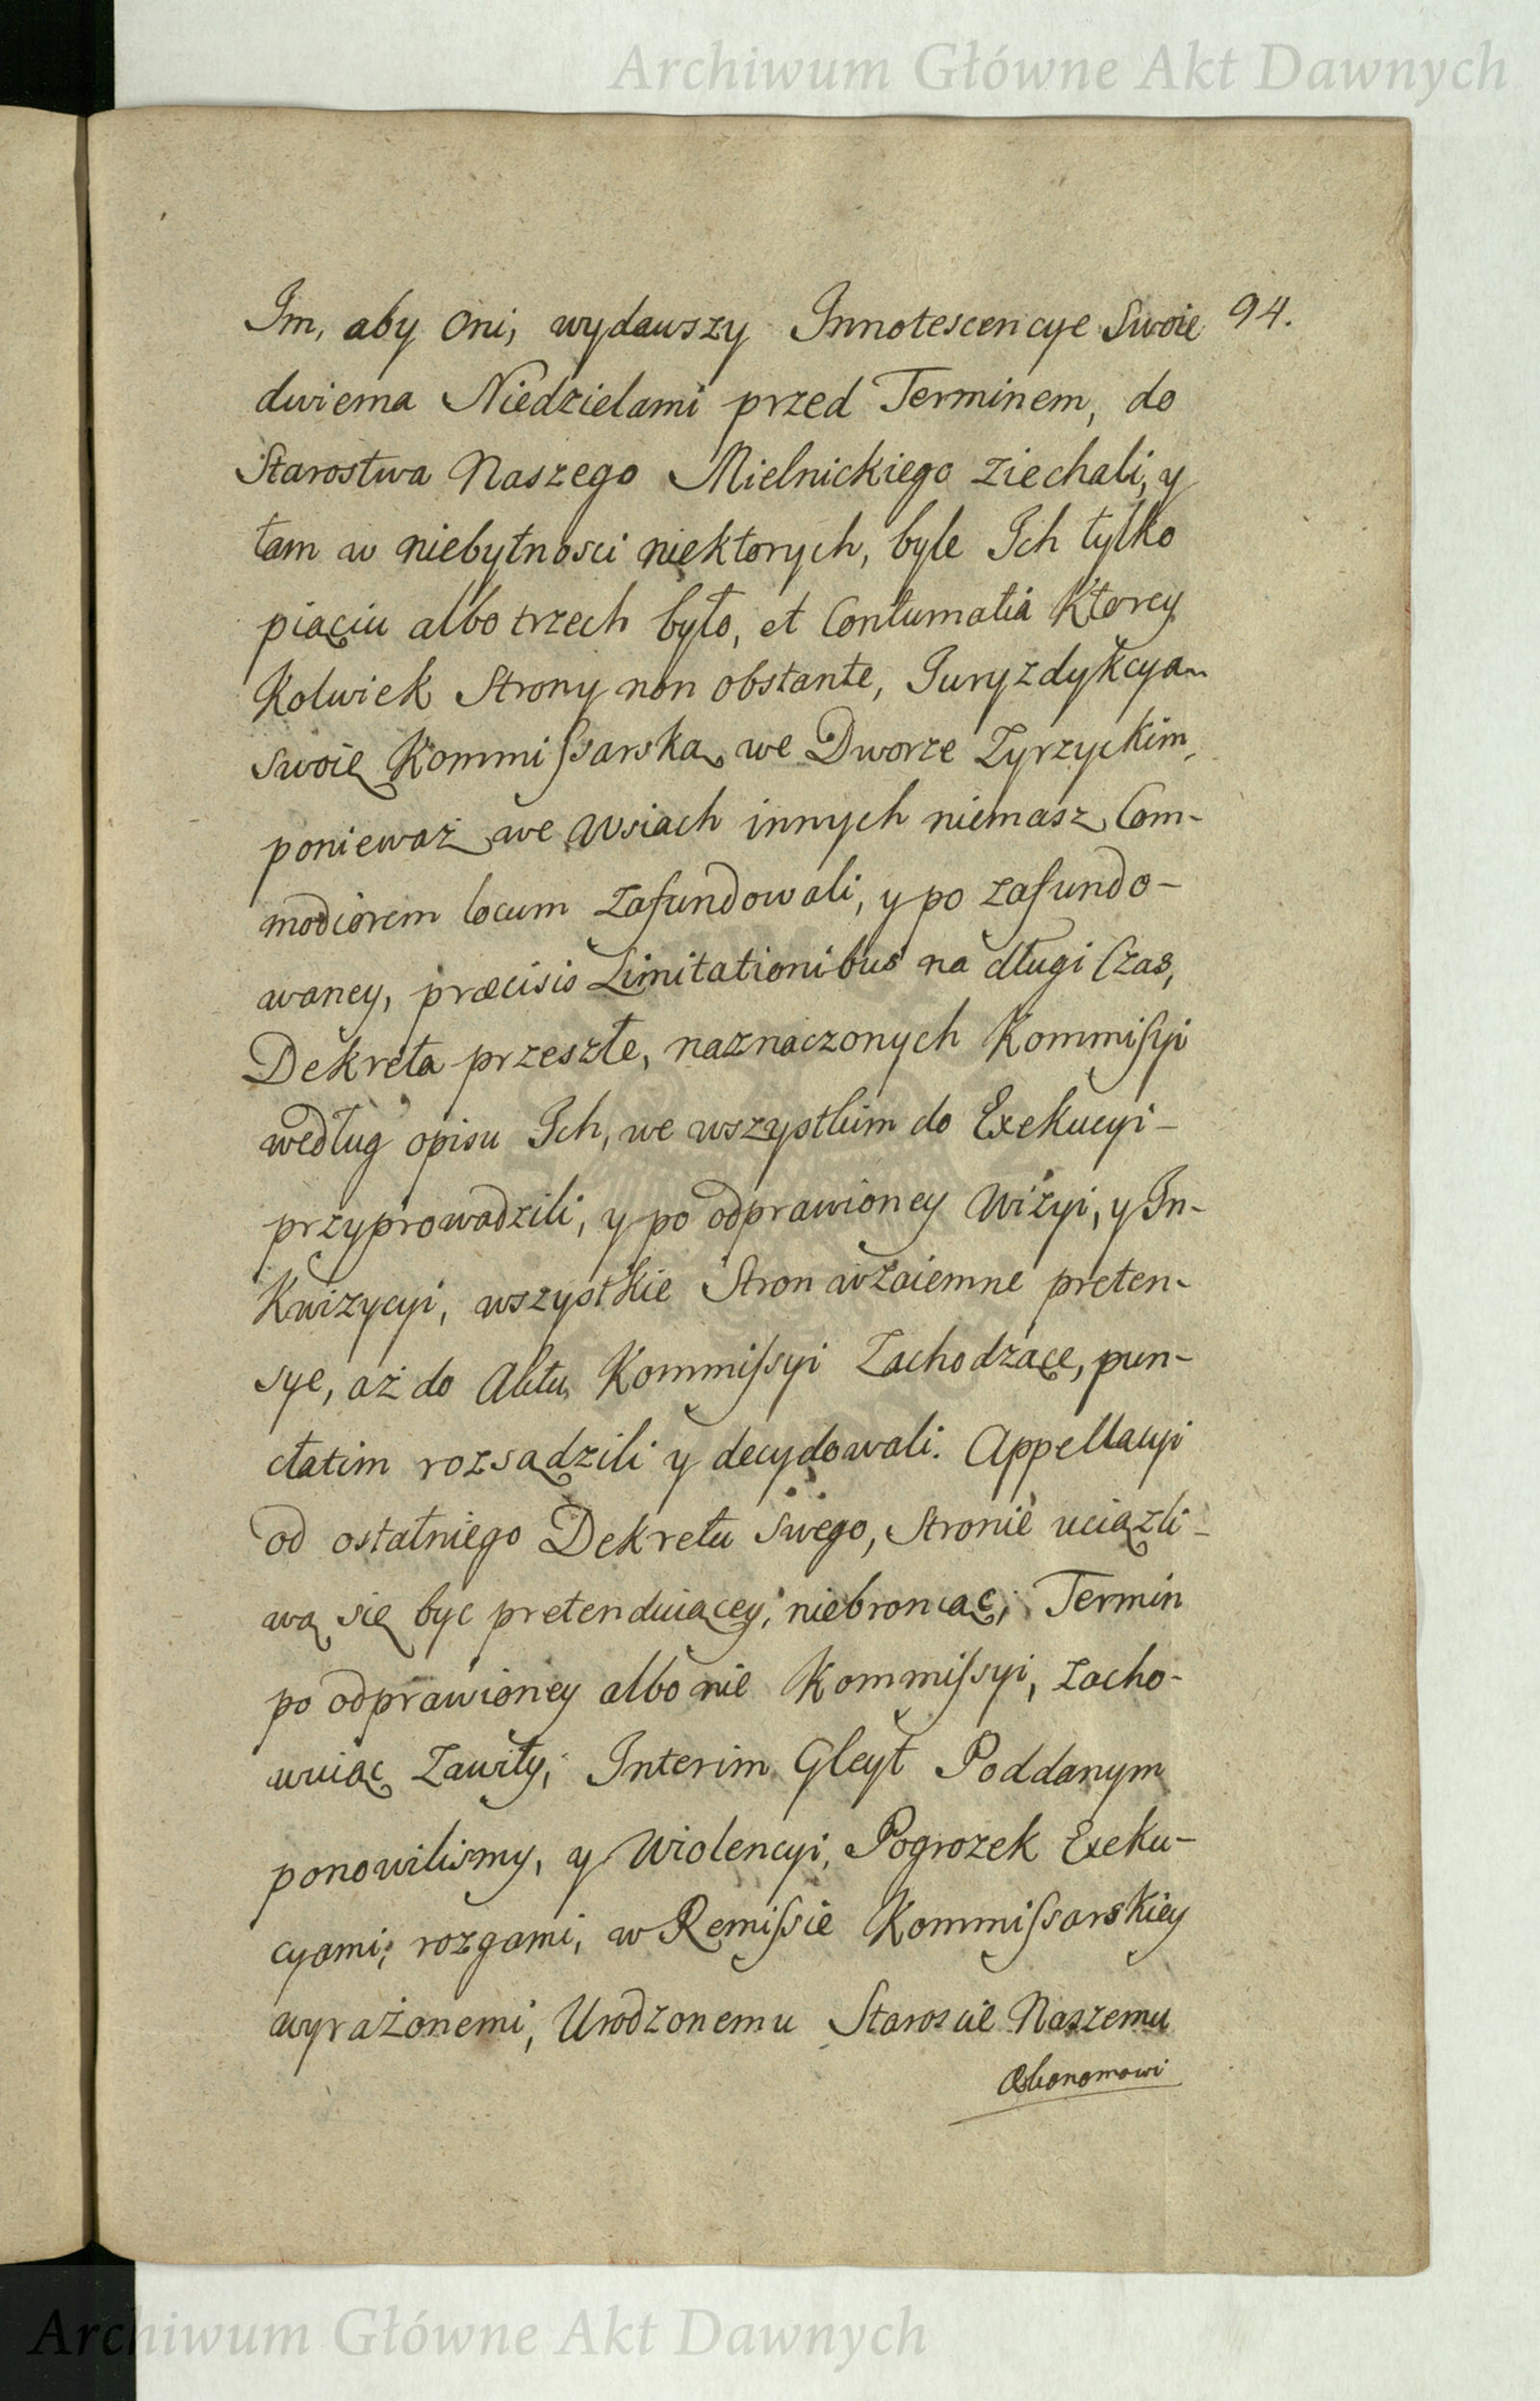 Archiwum Główne Akt Dawnych
Im, aby Oni, wydawszy Innotescencye Swoie 94.
dwiema Niedzielami przed Terminem, do
Starostwa Naszego Mielnickiego ziechali, y
tam w niebytnosci niektorych, byle Ich tylko
piąciu albo trzech było, et Contumatia Ktorey
Kolwiek Strony non obstante, Juryzdykcyą
swoię Kommissarską we Dworze Zyrzyckim,
ponieważ we Wsiach innych niemasz Com-
modiorem locum zafundowali, y po zafundo-
waney, præcisis Limitationibus na długi Czas,
Dekreta przeszłe, naznaczonych Kommissyi
według opisu Ich, we wszystkim do Exekucyi-
przyprowadzili, y po odprawioney Wizyi, y In-
Kwizycyi, wszystkie Stron wzaiemne preten-
sye, aż do Aktu Kommissyi Zachodzące, pun-
ctatim rozsądzili y decydowali. Appellacyi
od ostatniego Dekretu Swego, Stronie uciązli-
wą się byc pretenduiącey, niebroniąc, Termin
po odprawioney albo nie Kommissyi, zacho-
wuiąc Zawity, Interim Gleyt Poddanym
ponowilismy, y Wiolencyi, Pogrozek Exeku-
cyami, rozgami, w Remissie Kommissarskiey
wyrażonemi, Urodzonemu Staroscie Naszemu
Oekonomowi
Archiwum Główne Akt Dawnych